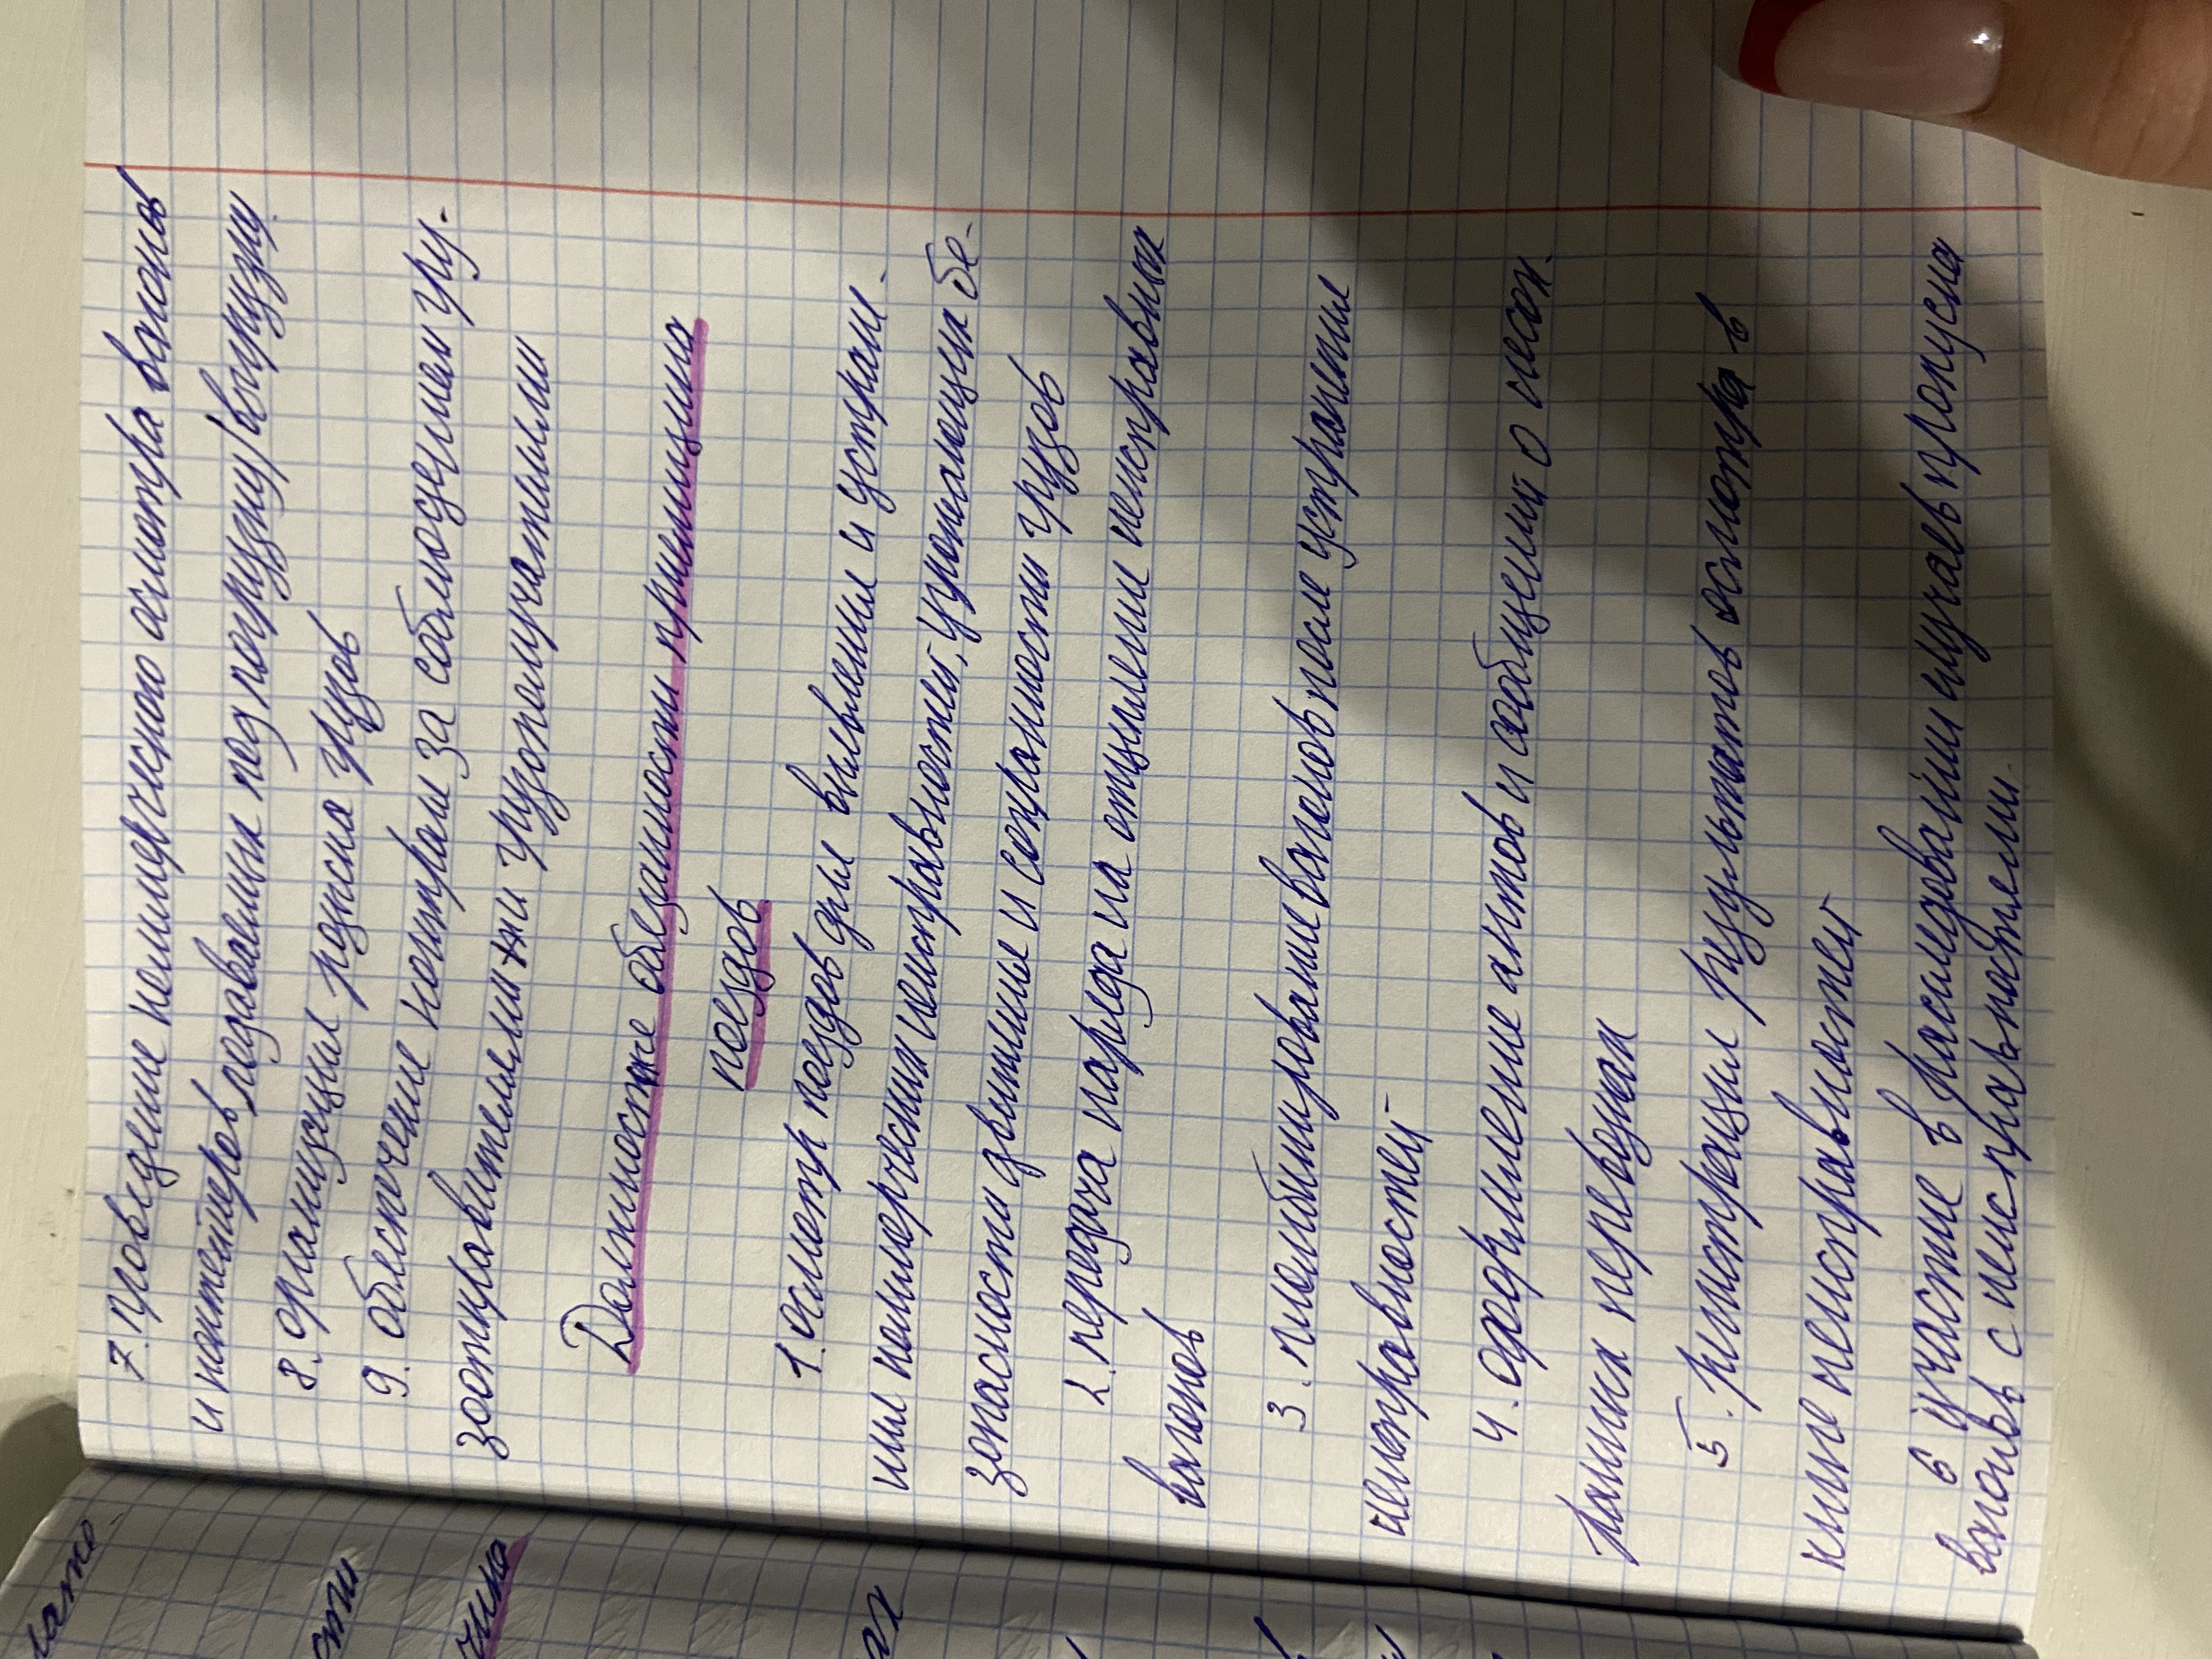 7. проведение коммерческого осмотра вагонов
и контейнеров, подаваемых под погрузку/выгрузку
8. организация розыска грузов
9. обеспечение контроля за соблюдением гру-
зоотправителями и грузополучателями
Должностные обязанности приемщика
поездов
1. осмотр поездов для выявления и устране-
ния коммерческих неисправностей, угрожающих бе-
зопасности движения и сохранности грузов
2. передача наряда на отцепление неисправных
вагонов
3. пломбирование вагонов после устранения
неисправностей
4. оформление актов и сообщений о несох.
ранных перевозках
5. регистрация результатов осмотра в
книге неисправностей
6 участие в расследовании случаев пропуска
вагонов с неисправностями.